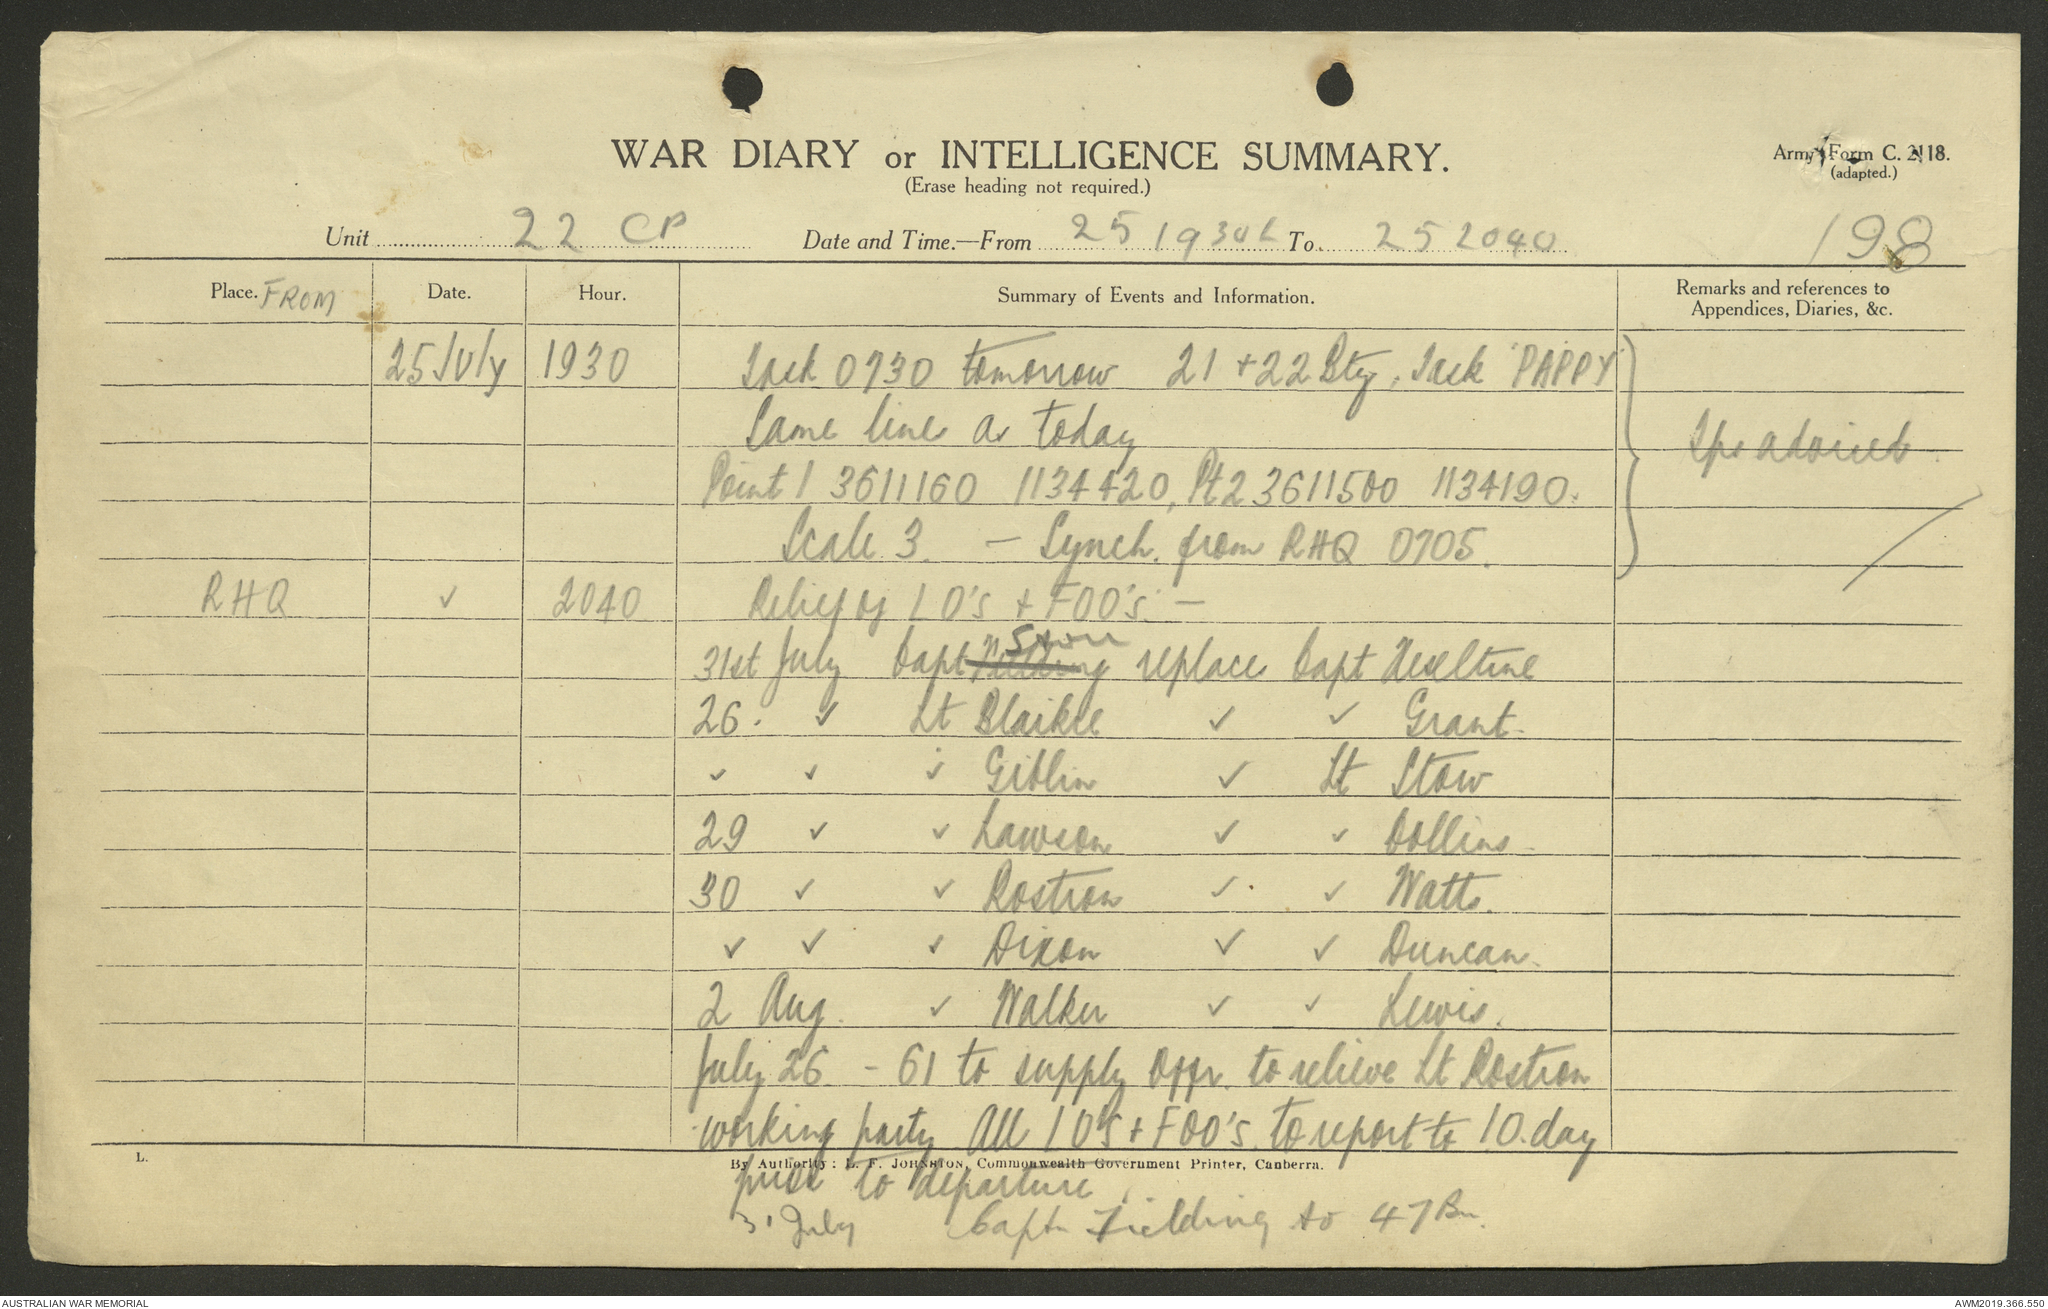 WAR DIARY or INTELLIGENCE SUMMARY.
(Erase heading not required.)
Army Form C. 2118.
(adapted.)
Unit 22 CP Date and Time.—From 25 1930L To 25 2040
198
Place. FROM Date. Hour. Summary of Events and Information. Remarks and references to Appendices, Diaries, &c.
25 July 1930 Task 0730 tomorrow 21 + 22 Bty, Task 'PAPPY'
Same line as today
Tps advised
Point 1 3611160 1134420, Pt 2 3611500 1134190.
Scale 3. — Synch. from RHQ 0705.
RHQ ✓ 2040 Relief of LO's + FOO's —
Stow
31st July Capt Fielding replace Capt Heseltine
26. ✓ Lt Blaikie ✓ ✓ Grant.
✓ ✓ ✓ Giblin ✓ Lt Stow
29 ✓ ✓ Lawson ✓ ✓ Collins
30 ✓ ✓ Rostron ✓ ✓ Watts.
✓ ✓ ✓ Dixon ✓ ✓ Duncan.
2 Aug. ✓ Walker ✓ ✓ Lewis.
July 26 - 61 to supply offr. to relieve Lt Rostron
working party All LO's + FOO's. to report to 10. day
L.
By Authority: L. F. JOHNSTON, Commonwealth Government Printer, Canberra.
prior to departure
31 July Capt Fielding to 47 Bn.
AUSTRALIAN WAR MEMORIAL
AWM2019.366.550